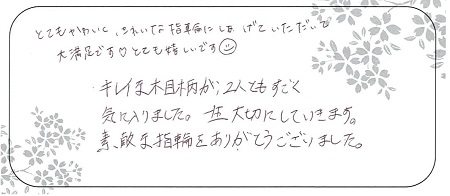 とてもかわいく、きれいな指輪に仕上げていただいて
大満足です♡とても嬉しいです☺
キレイな木目柄が、2人ともすごく
気に入りました。一生大切にしていきます。
素敵な指輪をありがとうございました。